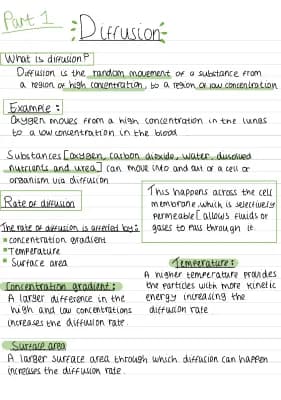 Part 1
Diffusion
What is diffusion?
Diffusion is the random movement of a substance from
a region of high concentration, to a region of low concentration
Example:
Oxygen moves from a high concentration in the lungs
to a low concentration in the blood
Substances [oxygen, carbon dioxide, water, dissolved
nutrients and urea] can move into and out of a cell or
organism via diffusion
This happens across the cell
membrane, which is selectively
permeable [allows fluids or
gases to pass through it
Rate of diffusion
The rate of diffusion is affected by:
concentration gradient
Temperature
Surface area
Concentration gradient:
A larger difference in the
high and low concentrations
increases the diffusion rate.
Temperature:
A higher temperature provides
the particles with more kinetic
energy increasing the
diffusion rate
Surface area
A larger surface area through which diffusion can happen
increases the diffusion rate.